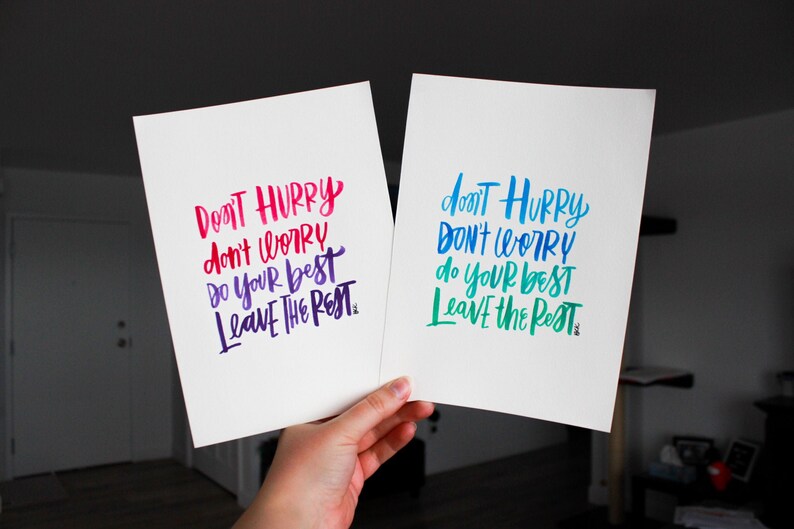 Don't Hurry
don't worry
Do your best
Leave the Rest
don't Hurry
DON'T worry
do your best
Leave the Rest